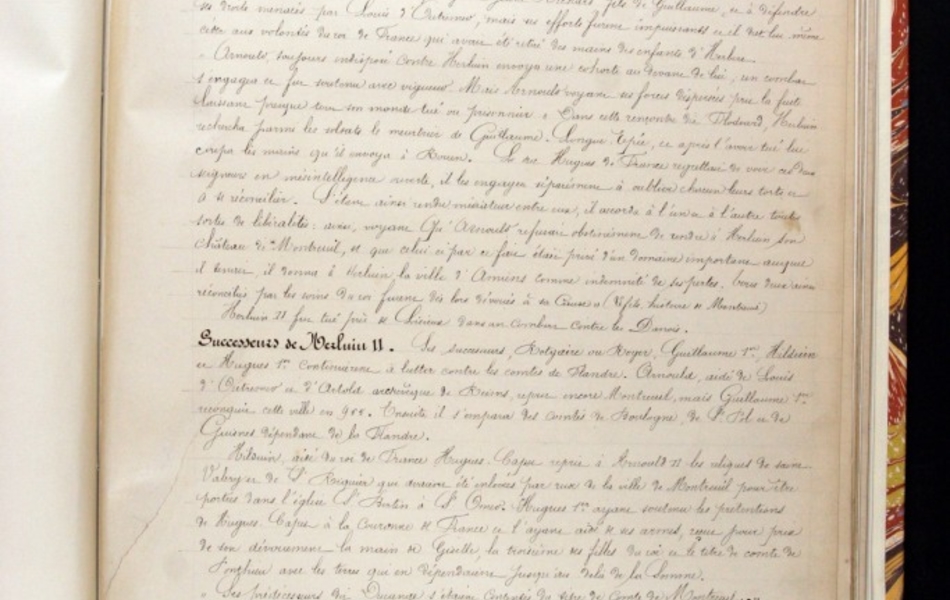 ses droits menacés par Louis d'Outremer, mais ses efforts furent impuissants et il dut lui même
céder aux volontés du roi de France qui avait été retiré des mains des enfants d'Herluin.
« Arnould, toujours indisposé contre Herluin envoya une cohorte au devant de lui, un combat
s'engagea et fut soutenu avec vigueur. Mais Arnould voyant ses forces dispersées prit la fuite
laissant presque tout son monde tué ou prisonnier « Dans cette rencontre dit Flodoard, Herluin
rechercha parmi les soldats le meurtrier de Guillaume Longue Epée, et après l'avoir tué lui
coupa les mains qu'il envoya à Rouen. Le duc Hugues de France regrettait de voir ces deux
seigneurs en mésintelligence ouverte, il les engagea séparément à oublier chacun leurs torts et
à se réconcilier. S'étant ainsi rendu médiateur entre eux, il accorda à l'un et à l'autre toutes
sortes de libéralités : ainsi, voyant qu'Arnould refusait obstinément de rendre à Herluin son
château de Montreuil, et que celui ci par ce fait était privé d'un domaine important auquel
il tenait, il donna à Herluin la ville d'Amiens comme indemnité de ses pertes. Tous deux ainsi
réconciliés par les soins du roi furent dès lors dévoués à sa cause » (Vifils, histoire de Montreuil)
Herluin II fut tué près de Lisieux dans un combat contre les Danois.
Successeurs de Herluin II. Ses successeurs, Rotgaire ou Roger, Guillaume 1er, Hilduin
et Hugues 1er continuèrent à lutter contre les comtes de Flandre. Arnould, aidé de Louis
d'Outremer et d'Artold archevêque de Reims, reprit encore Montreuil, mais Guillaume 1er
reconquit cette ville en 955. Ensuite il s'empara des Comtés de Boulogne, de St Pol et de
Guisnes dépendant de la Flandre.
Hilduin, aidé du roi de France Hugues Capet reprit à Arnould II les reliques de saint
Valery et de St Riquier qui avaient été enlevées par eux de la ville de Montreuil pour être
portées dans l'église St Bertin à St Omer. Hugues 1er ayant soutenu les prétentions
de Hugues Capet à la Couronne de France et l'ayant aidé de ses armes, reçut pour prix
de son dévouement la main de Giselle, la troisième des filles du roi et le titre de comte de
Ponthieu avec les terres qui en dépendaient jusqu'au delà de la Somme.
« Ses prédécesseurs dit Ducange s'étaient contentés du titre de Comte de Montreuil